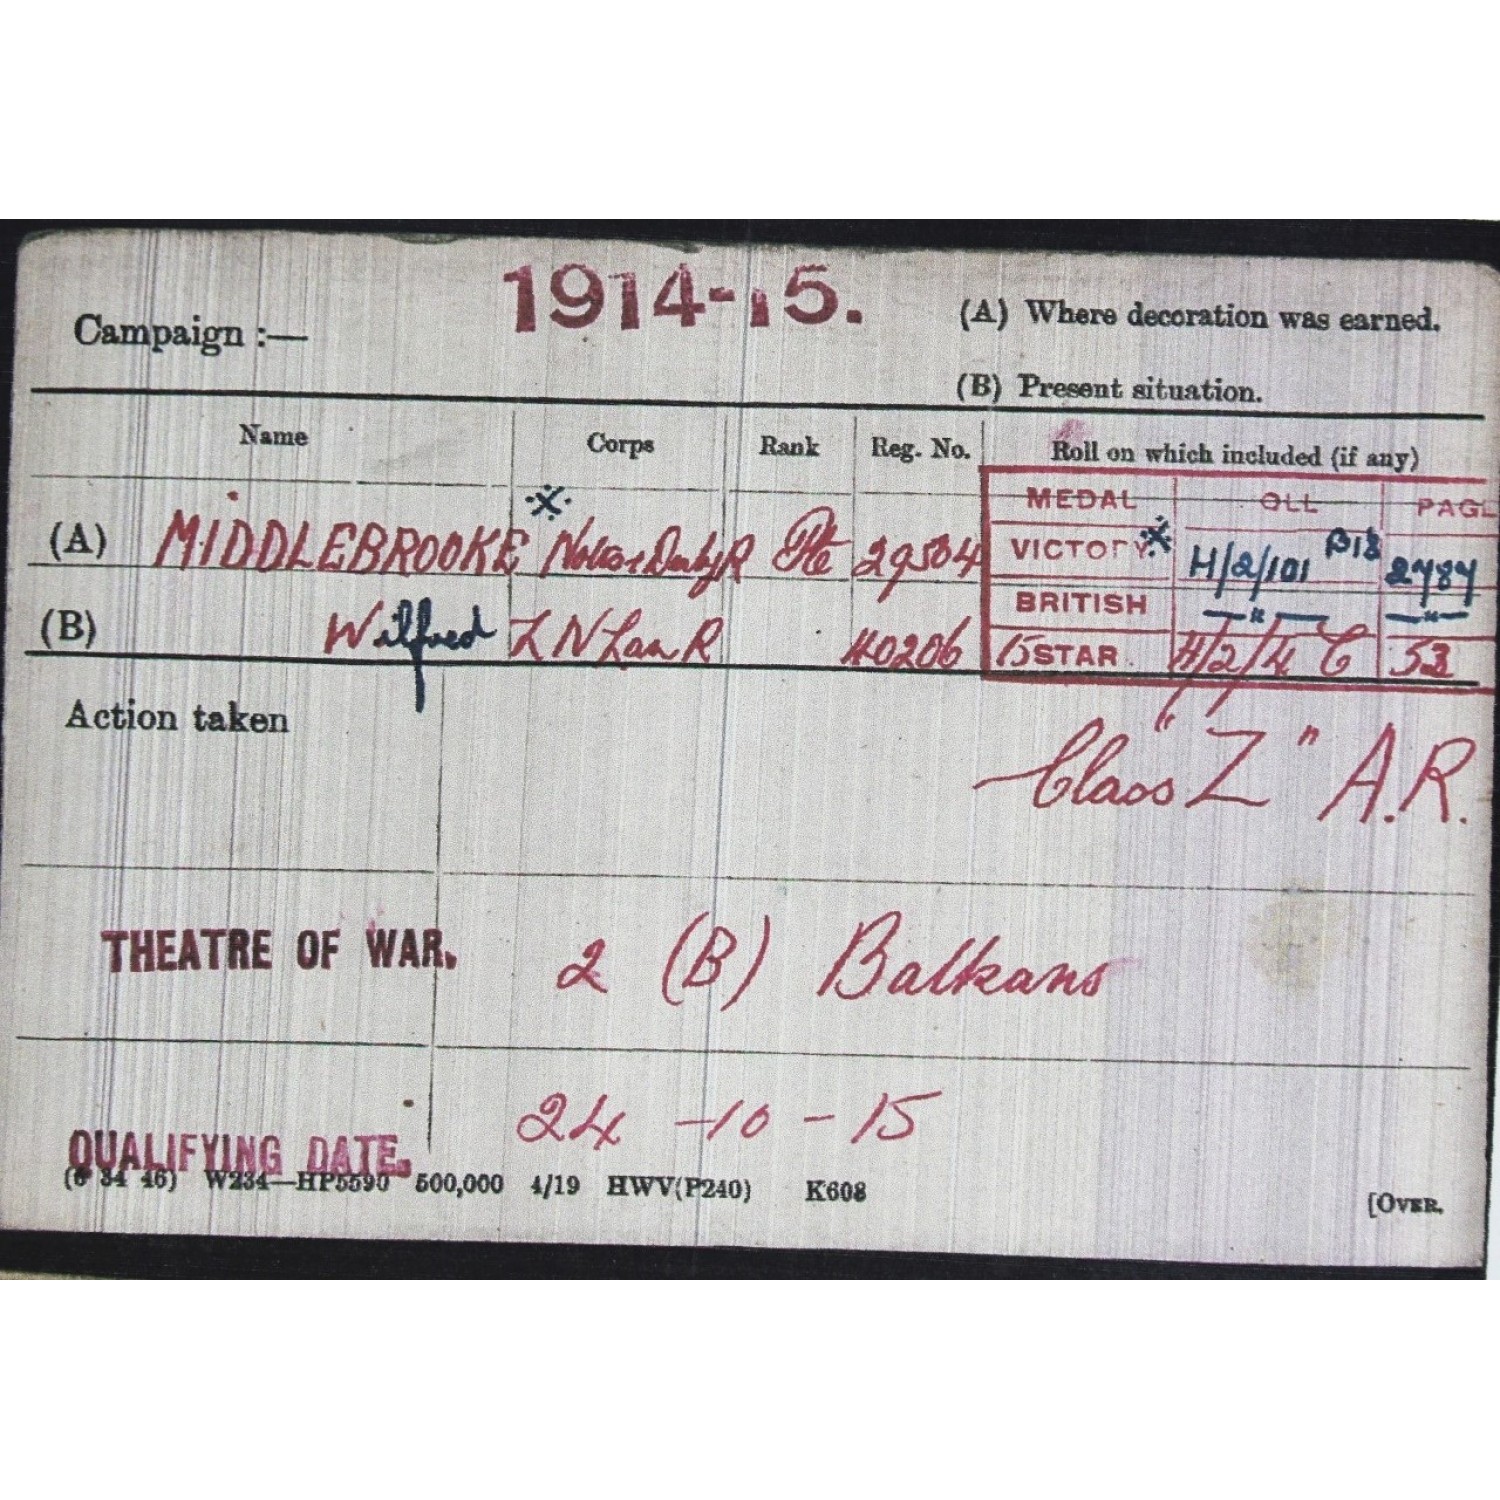 Campaign :— 1914-15. (A) Where decoration was earned.
(B) Present situation.
Name Corps Rank Reg. No. Roll on which included (if any)
MEDAL OLL PAGE
(A) MIDDLEBROOKE ※ Notts & Derby R Pte 29504 VICTORY ※ H/2/101 B18 2787
BRITISH —"— —"—
(B) Wilfred L N Lan R 40206 15 STAR. H/2/4 C 53
Action taken
Class "Z" A.R.
THEATRE OF WAR. 2 (B) Balkans
QUALIFYING DATE. 24 - 10 - 15
(6 34 46) W234—HP5590 500,000 4/19 HWV(P240) K608
[OVER.